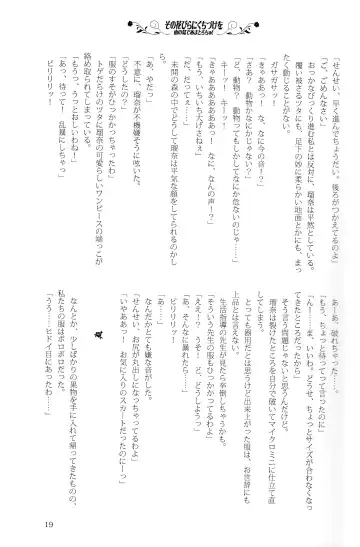 その花びらにくちづけを
「せんせい。早く進んでよ。後ろがつかえてるのよ」
「ご、ごめんなさい」
おっかなびっくり進む私とは反対に、瑠奈は平然としている。
覆い被さるツタにも、足下の妙に柔らかい地面とかにも、ま
たく動じることがない。
ガサガサッ！
「きゃああっ！　な、なに今の音！？」
「さあ？　動物かなにかじゃないの？」
「ど、動物？　動物ってもしかしてなにか危ないのじゃ……」
キーッ！
「きゃああああああああっ！　な、なんの声！？」
「もう、いちいち大げさねぇ」
「だ、だだって……」
未開の森の中でどうして瑠奈は平気な顔をしてられるのかし
ら……。
「あ、やだっ」
いきなり、瑠奈が不機嫌そうに呟いた。
「どうしたの？」
「服のすそがひっかかっちゃったわ」
トゲだらけのツタに、瑠奈の可愛らしいワンピースの端っこが
絡め取られてしまっている。
「もうっ、うっとおしいわね！」
「あっ、待って！　乱暴にしちゃっ」
ビリリリッ！
「あ……あ、破れちゃった……」
「もう、ちょっと待ってって言ったのに」
「ん～……ま、いいわ。どうせ、ちょっとサイズが合わなくなっ
てきたところだったから」
そう言う問題じゃないと思うんだけど。
瑠奈は裂けたところを自分で破いてマイクロミニに仕立て直
す。
とっても器用だとは思うけど出来上がった服は、お世辞にも
上品とは言えない。
生活指導の先生が見たら卒倒しちゃうかも。
「そういう先生の服もひっかかってるわよ」
「ええ！？　うそ！　ど、どうしようっ」
「あ、そんなに暴れたら」
ビリリリッ！
「あ……」
なんだかとても嫌な音がした。
「せんせい、お尻が丸出しになっちゃってるわよ」
「いやああっ！　お気に入りのスカートだったのにーっ」
なんとか、少しばかりの果物を手に入れて戻ってきたものの、
私たちの服はボロボロだった。
「うう……ヒドイ目にあったわ……」
19